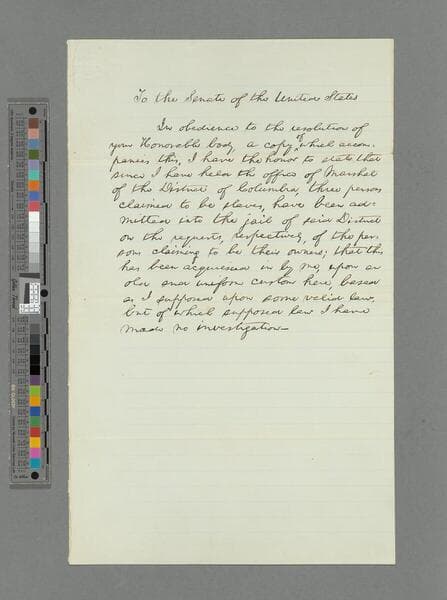 To the Senate of the United States
In obedience to the resolution of
your Honorable body, a copy of which accom-
panies this, I have the honor to state that
since I have held the office of Marshal
of the District of Columbia, three persons
claimed to be slaves, have been ad-
mitted into the jail of said District
on the requests, respectively, of the per-
sons claiming to be their owners; that this
has been acquiesced in by me, upon an
old and uniform custom here, based
as I supposed upon some valid law,
but of which supposed law I have
made no investigation—